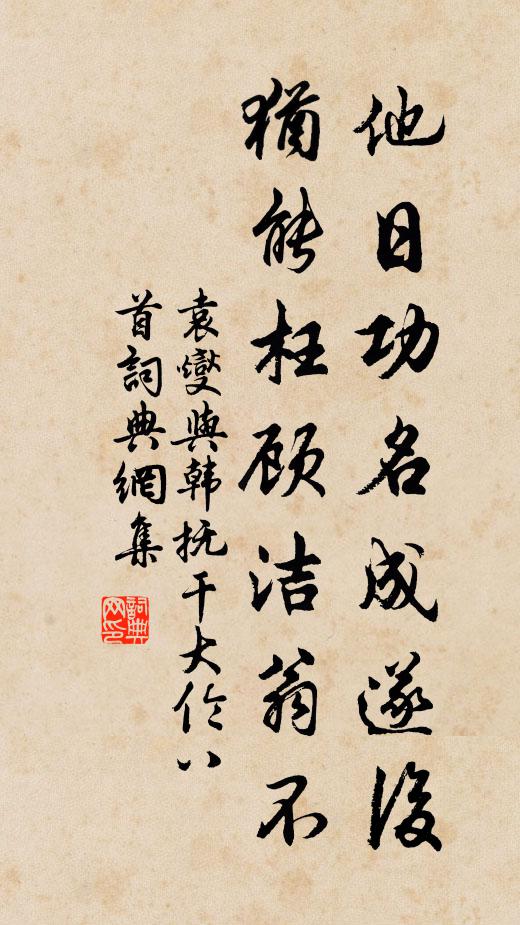 他日功名成遂後
猶能枉顾洁翁不
袁燮與韩抚干大伦八
首詞典網集
詞典
网印